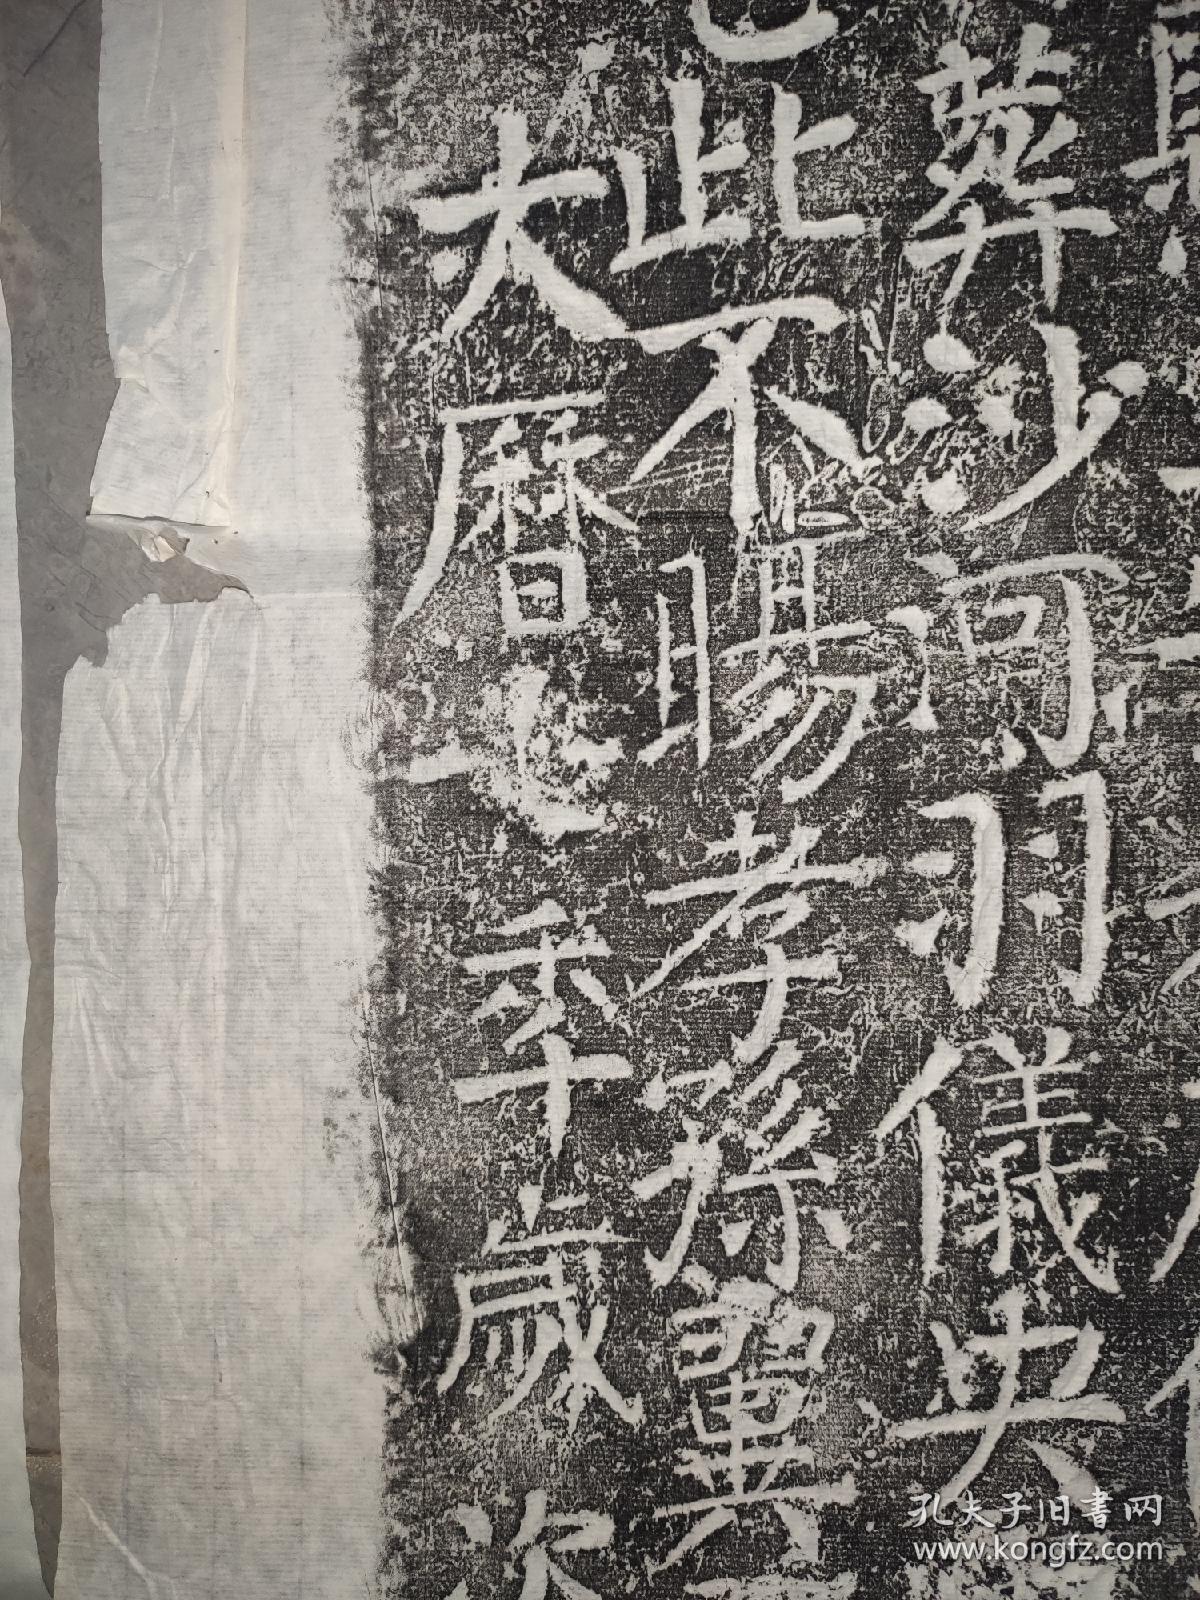 葬沙河羽儀央
此不暘孝孫
大曆七秊歲次
孔夫子旧書网
www.kongfz.com